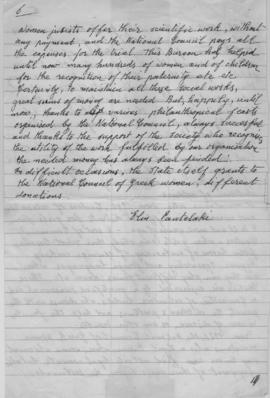 6
Women jurists offer their scientific work, without
any payment, and the National Council pays all
the expenses for the trial. This Bureau has helped
until now many hundreds of women and of children
for the recognition of their paternity etc etc.
Certainly, to maintain all these social works,
great sums of money are needed. But, happily, until
now, thanks to various philanthropical feasts
organised by the National Council, always successful
and thanks to the support of the Society who recognises
the utility of the work fulfilled by our organisation
the needed money has always been funded.
In difficult occasions, the State itself grants to
the National Council of Greek women, different
donations
Elin Pantelaki